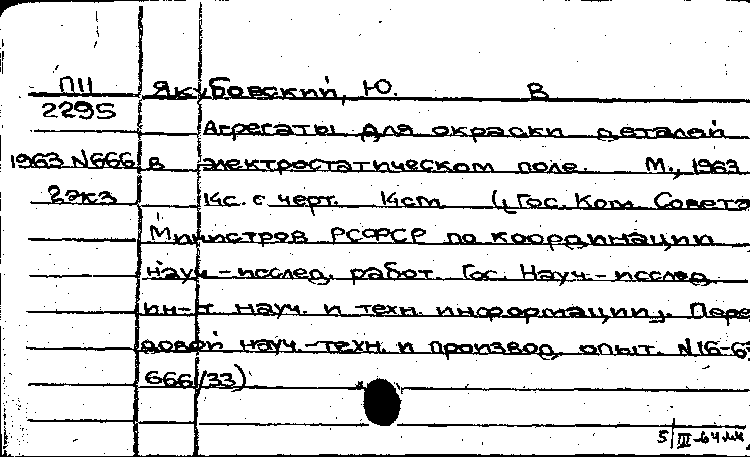 ПII Якубовский, Ю. В
2295
Агрегаты для окраски деталей
1963 N666 в электростатическом поле. М., 1963
2экз 14с. с черт. 14см (Гос. Ком. Совета
Министров РСФСР по координации
науч-исслед. работ. Гос. Науч.-исслед.
ин-т науч. и техн. информации). Пере
довой науч.-техн. и производ. опыт. N16-63
666/33)
5/III-64